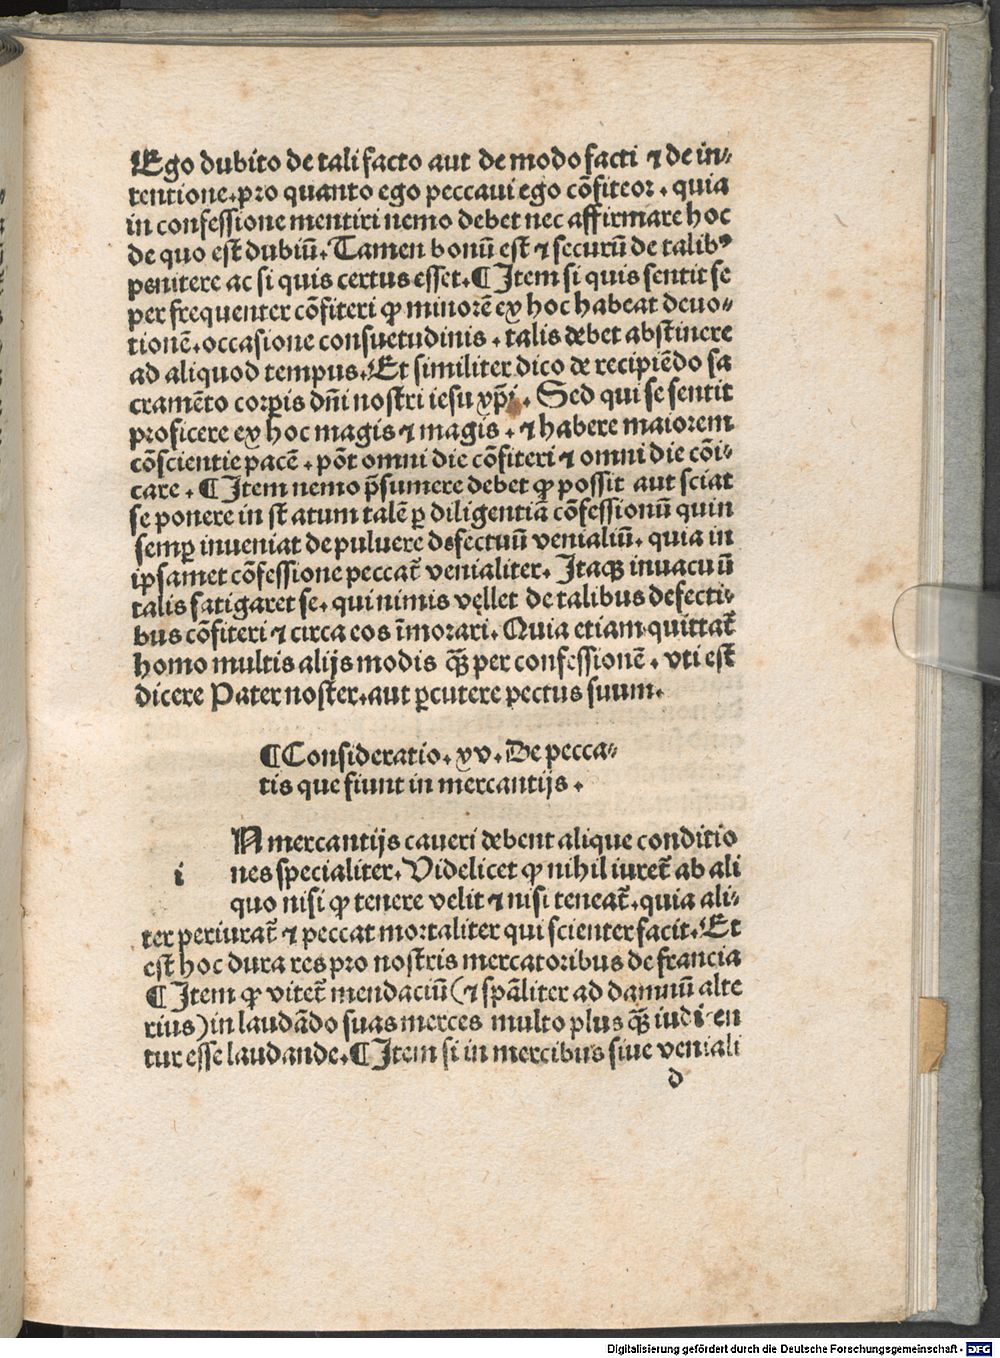 Ego dubito de tali facto aut de modo facti ⁊ de in⸗
tentione.pro quanto ego peccaui ego cōfiteor. quia
in confessione mentiri nemo debet nec affirmare hoc
de quo est dubiū. Tamen bonū est ⁊ securū de talibꝰ
penitere ac si quis certus esset.¶ Item si quis sentit se
per frequenter cōfiteri ꝙ minorē ex hoc habeat deuo⸗
tionē.occasione consuetudinis. talis debet abstinere
ad aliquod tempus.Et similiter dico de recipiēdo sa
cramēto corꝑis dn̄i nostri iesu xp̄i. Sed qui se sentit
proficere ex hoc magis ⁊ magis. ⁊ habere maiorem
cōscientie pacē. pōt omni die cōfiteri ⁊ omni die cōi⸗
care. ¶ Item nemo p̄sumere debet ꝙ possit aut sciat
se ponere in statum talē ꝑ diligentiā cōfessionū quin
semꝑ inueniat de puluere defectuū venialiū. quia in
ipsamet cōfessione peccat̄ venialiter. Itaqꝫ in uacuū
talis fatigaret se. qui nimis vellet de talibus defecti⸗
bus cōfiteri ⁊ circa eos īmorari. Quia etiam quittat̄
homo multis alijs modis qꝫ̄ per confessionē. vti est
dicere Pater noster.aut ꝑcutere pectus suum.
¶Consideratio. xv. De pecca⸗
tis que fiunt in mercantijs.
i
N mercantijs caueri debent alique conditio
nes specialiter. Videlicet ꝙ nihil iuret̄ ab ali
quo nisi ꝙ tenere velit ⁊ nisi teneat̄.quia ali⸗
ter periurat̄ ⁊ peccat mortaliter qui scienter facit.Et
est hoc dura res pro nostris mercatoribus de francia
¶ Item ꝙ vitet̄ mendaciū(⁊ spāliter ad damnū alte
rius)in laudādo suas merces multo plus qꝫ̄ iudicen
tur esse laudande.¶ Item si in mercibus siue veniali
d
Digitalisierung gefördert durch die Deutsche Forschungsgemeinschaft - DFG